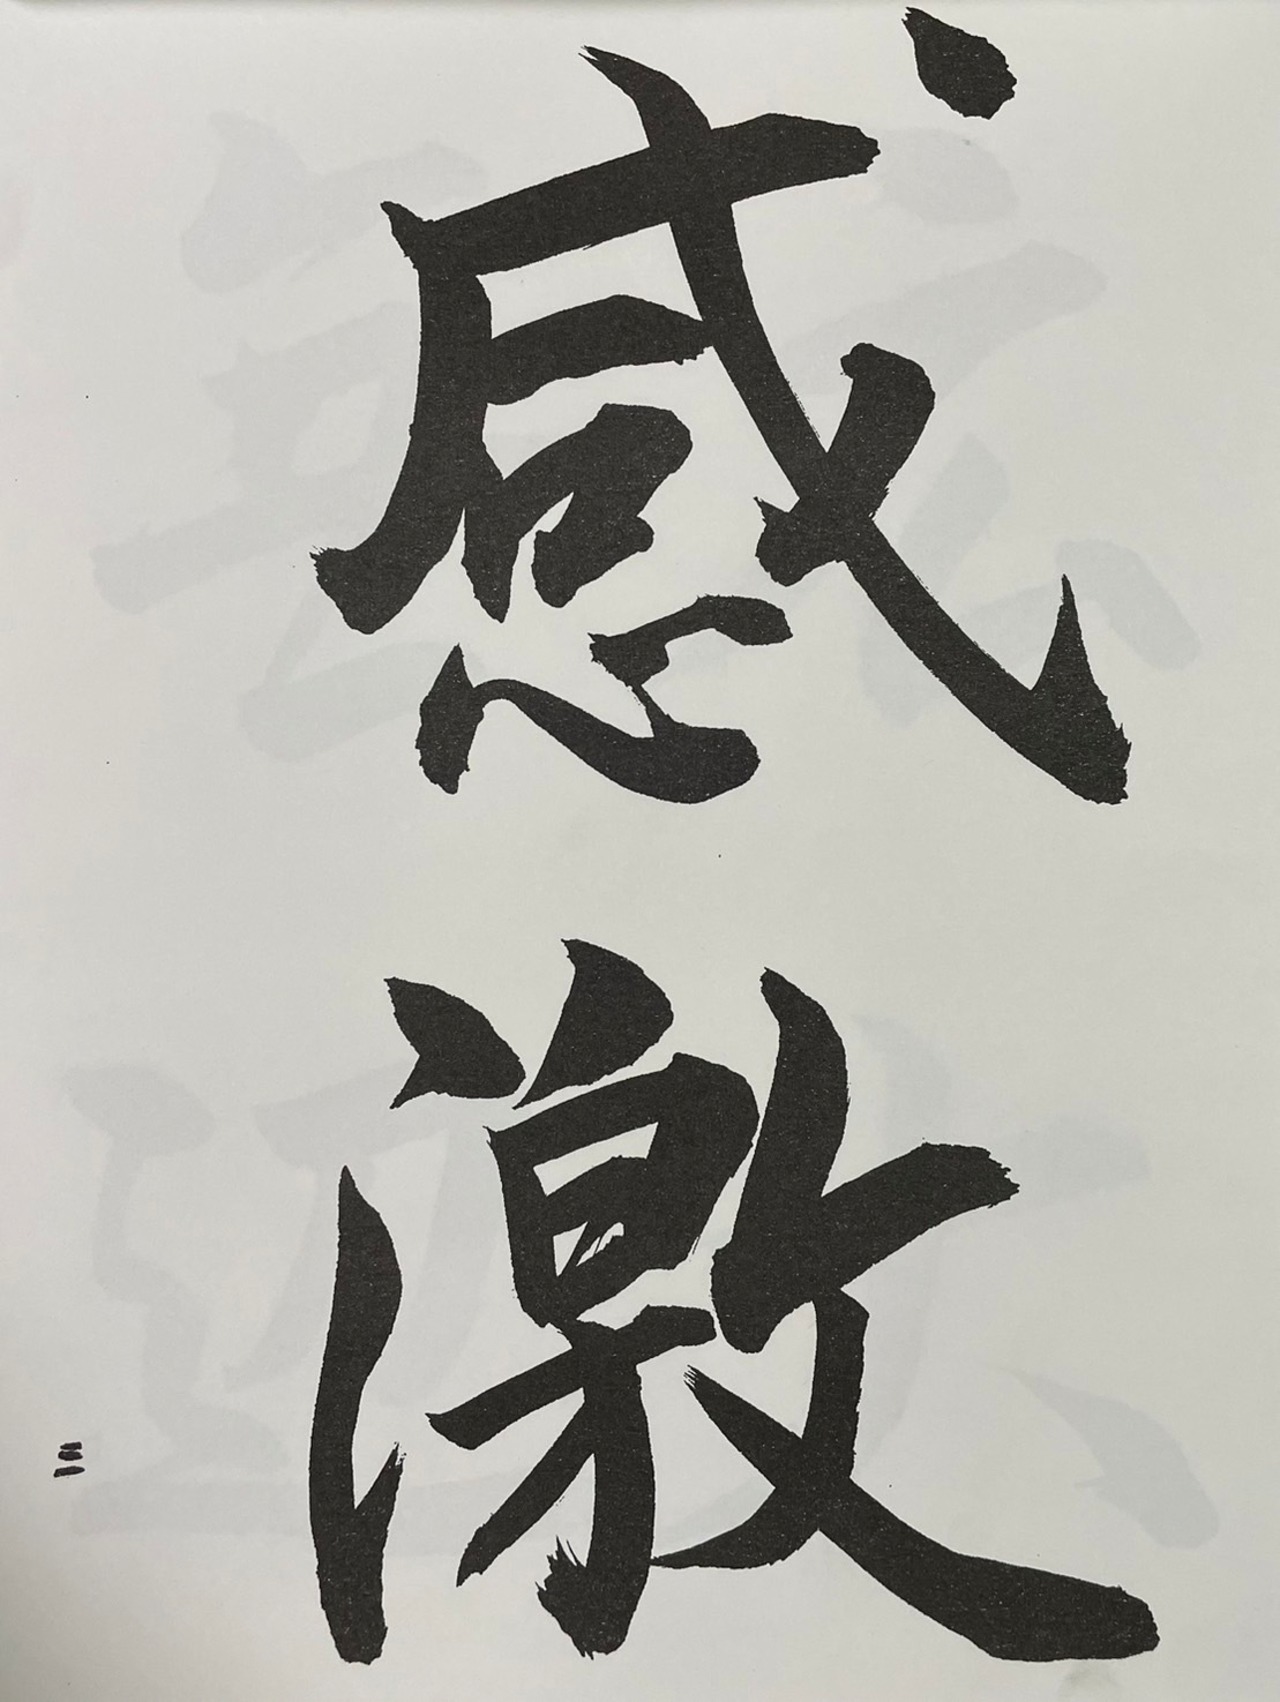 感激
三